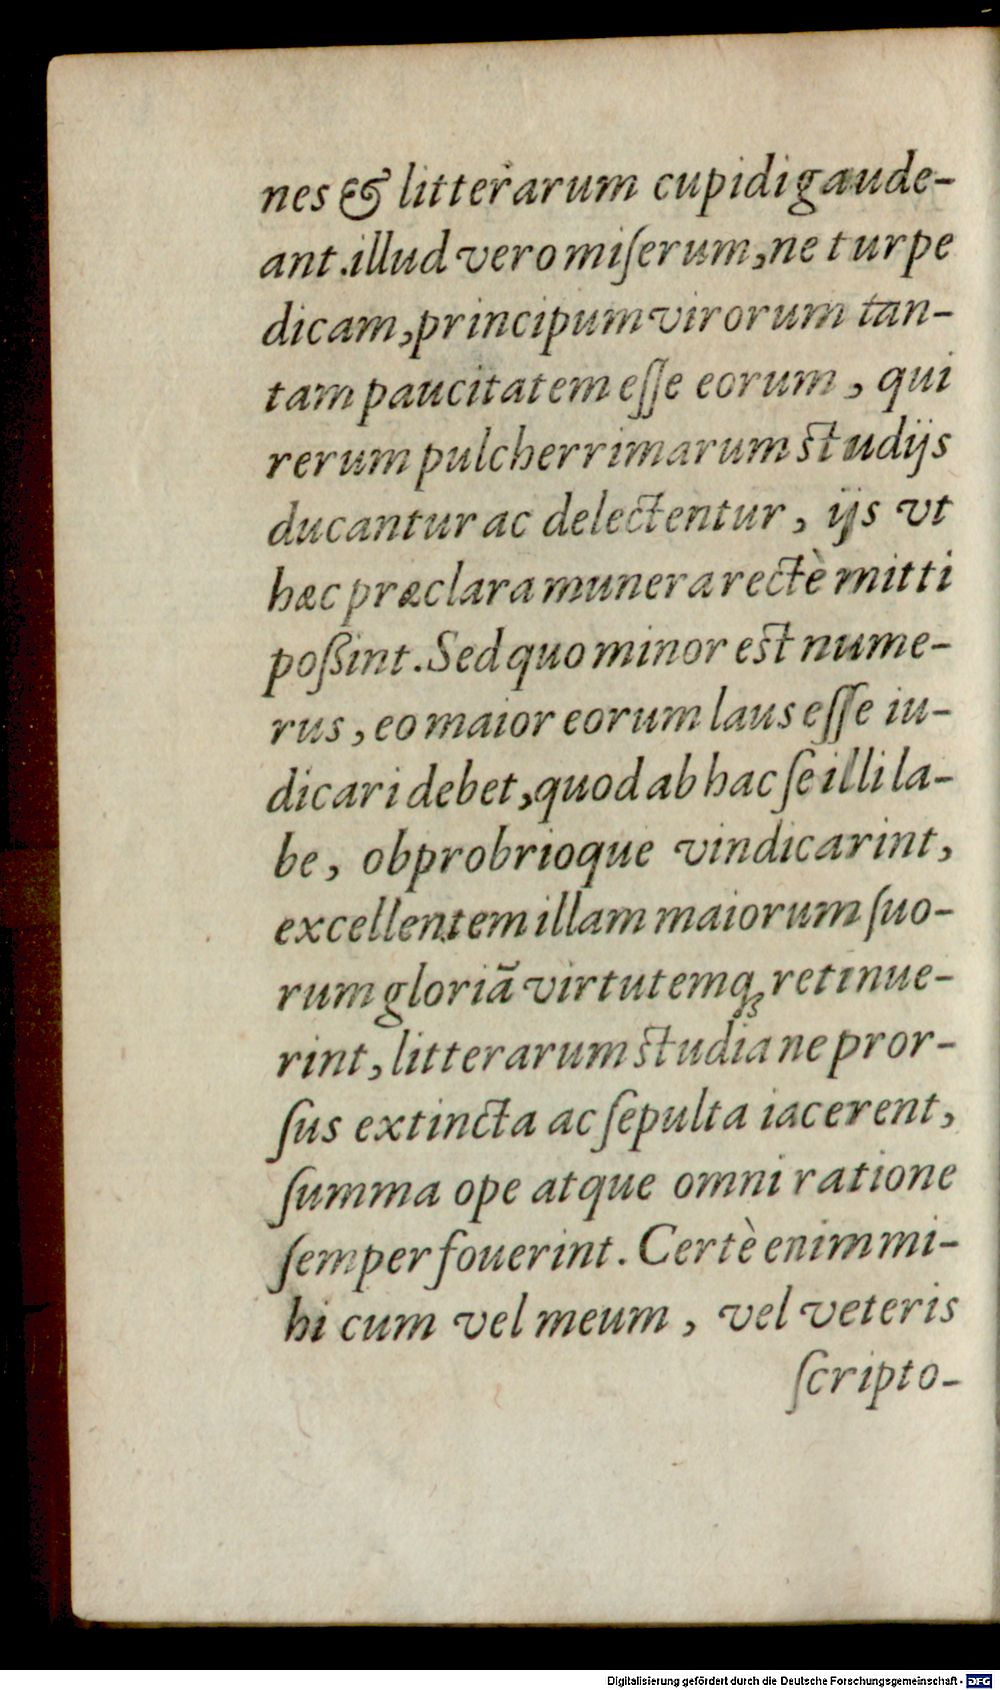 nes & litterarum cupidi gaude-
ant. illud vero miſerum, ne turpe
dicam, principum virorum tan-
tam paucitatem eſſe eorum, qui
rerum pulcherrimarum ſtudijs
ducantur ac delectentur, ijs vt
hæc præclara munera rectè mitti
poßint. Sed quo minor eſt nume-
rus, eo maior eorum laus eſſe iu-
dicari debet, quod ab hac ſe illi la-
be, obprobrioque vindicarint,
excellentem illam maiorum ſuo-
rum gloriā virtutemqꝫ retinue-
rint, litterarum ſtudia ne pror-
ſus extincta ac ſepulta iacerent,
ſumma ope atque omni ratione
ſemper fouerint. Certè enim mi-
hi cum vel meum, vel veteris
ſcripto-
Digitalisierung gefördert durch die Deutsche Forschungsgemeinschaft - DFG